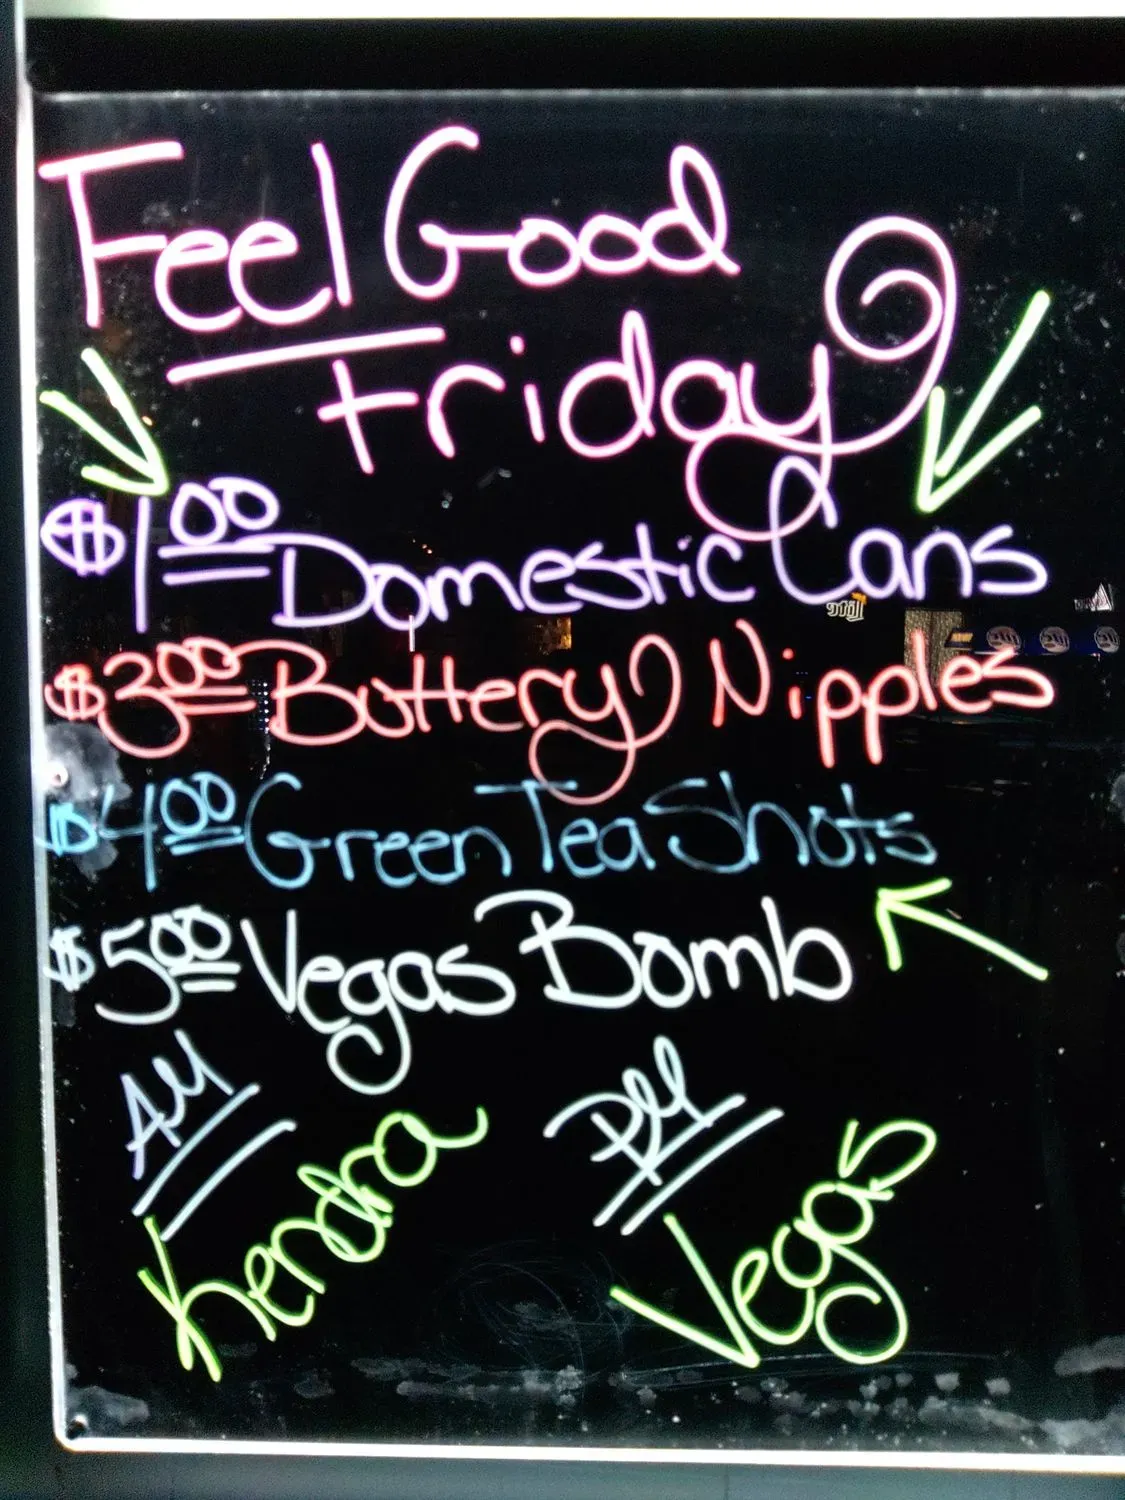 Feel Good
Friday
$1.00 Domestic Cans
$3.00 Buttery Nipples
$4.00 Green Tea Shots
$5.00 Vegas Bomb
AM
Kendra
PM
Vegas